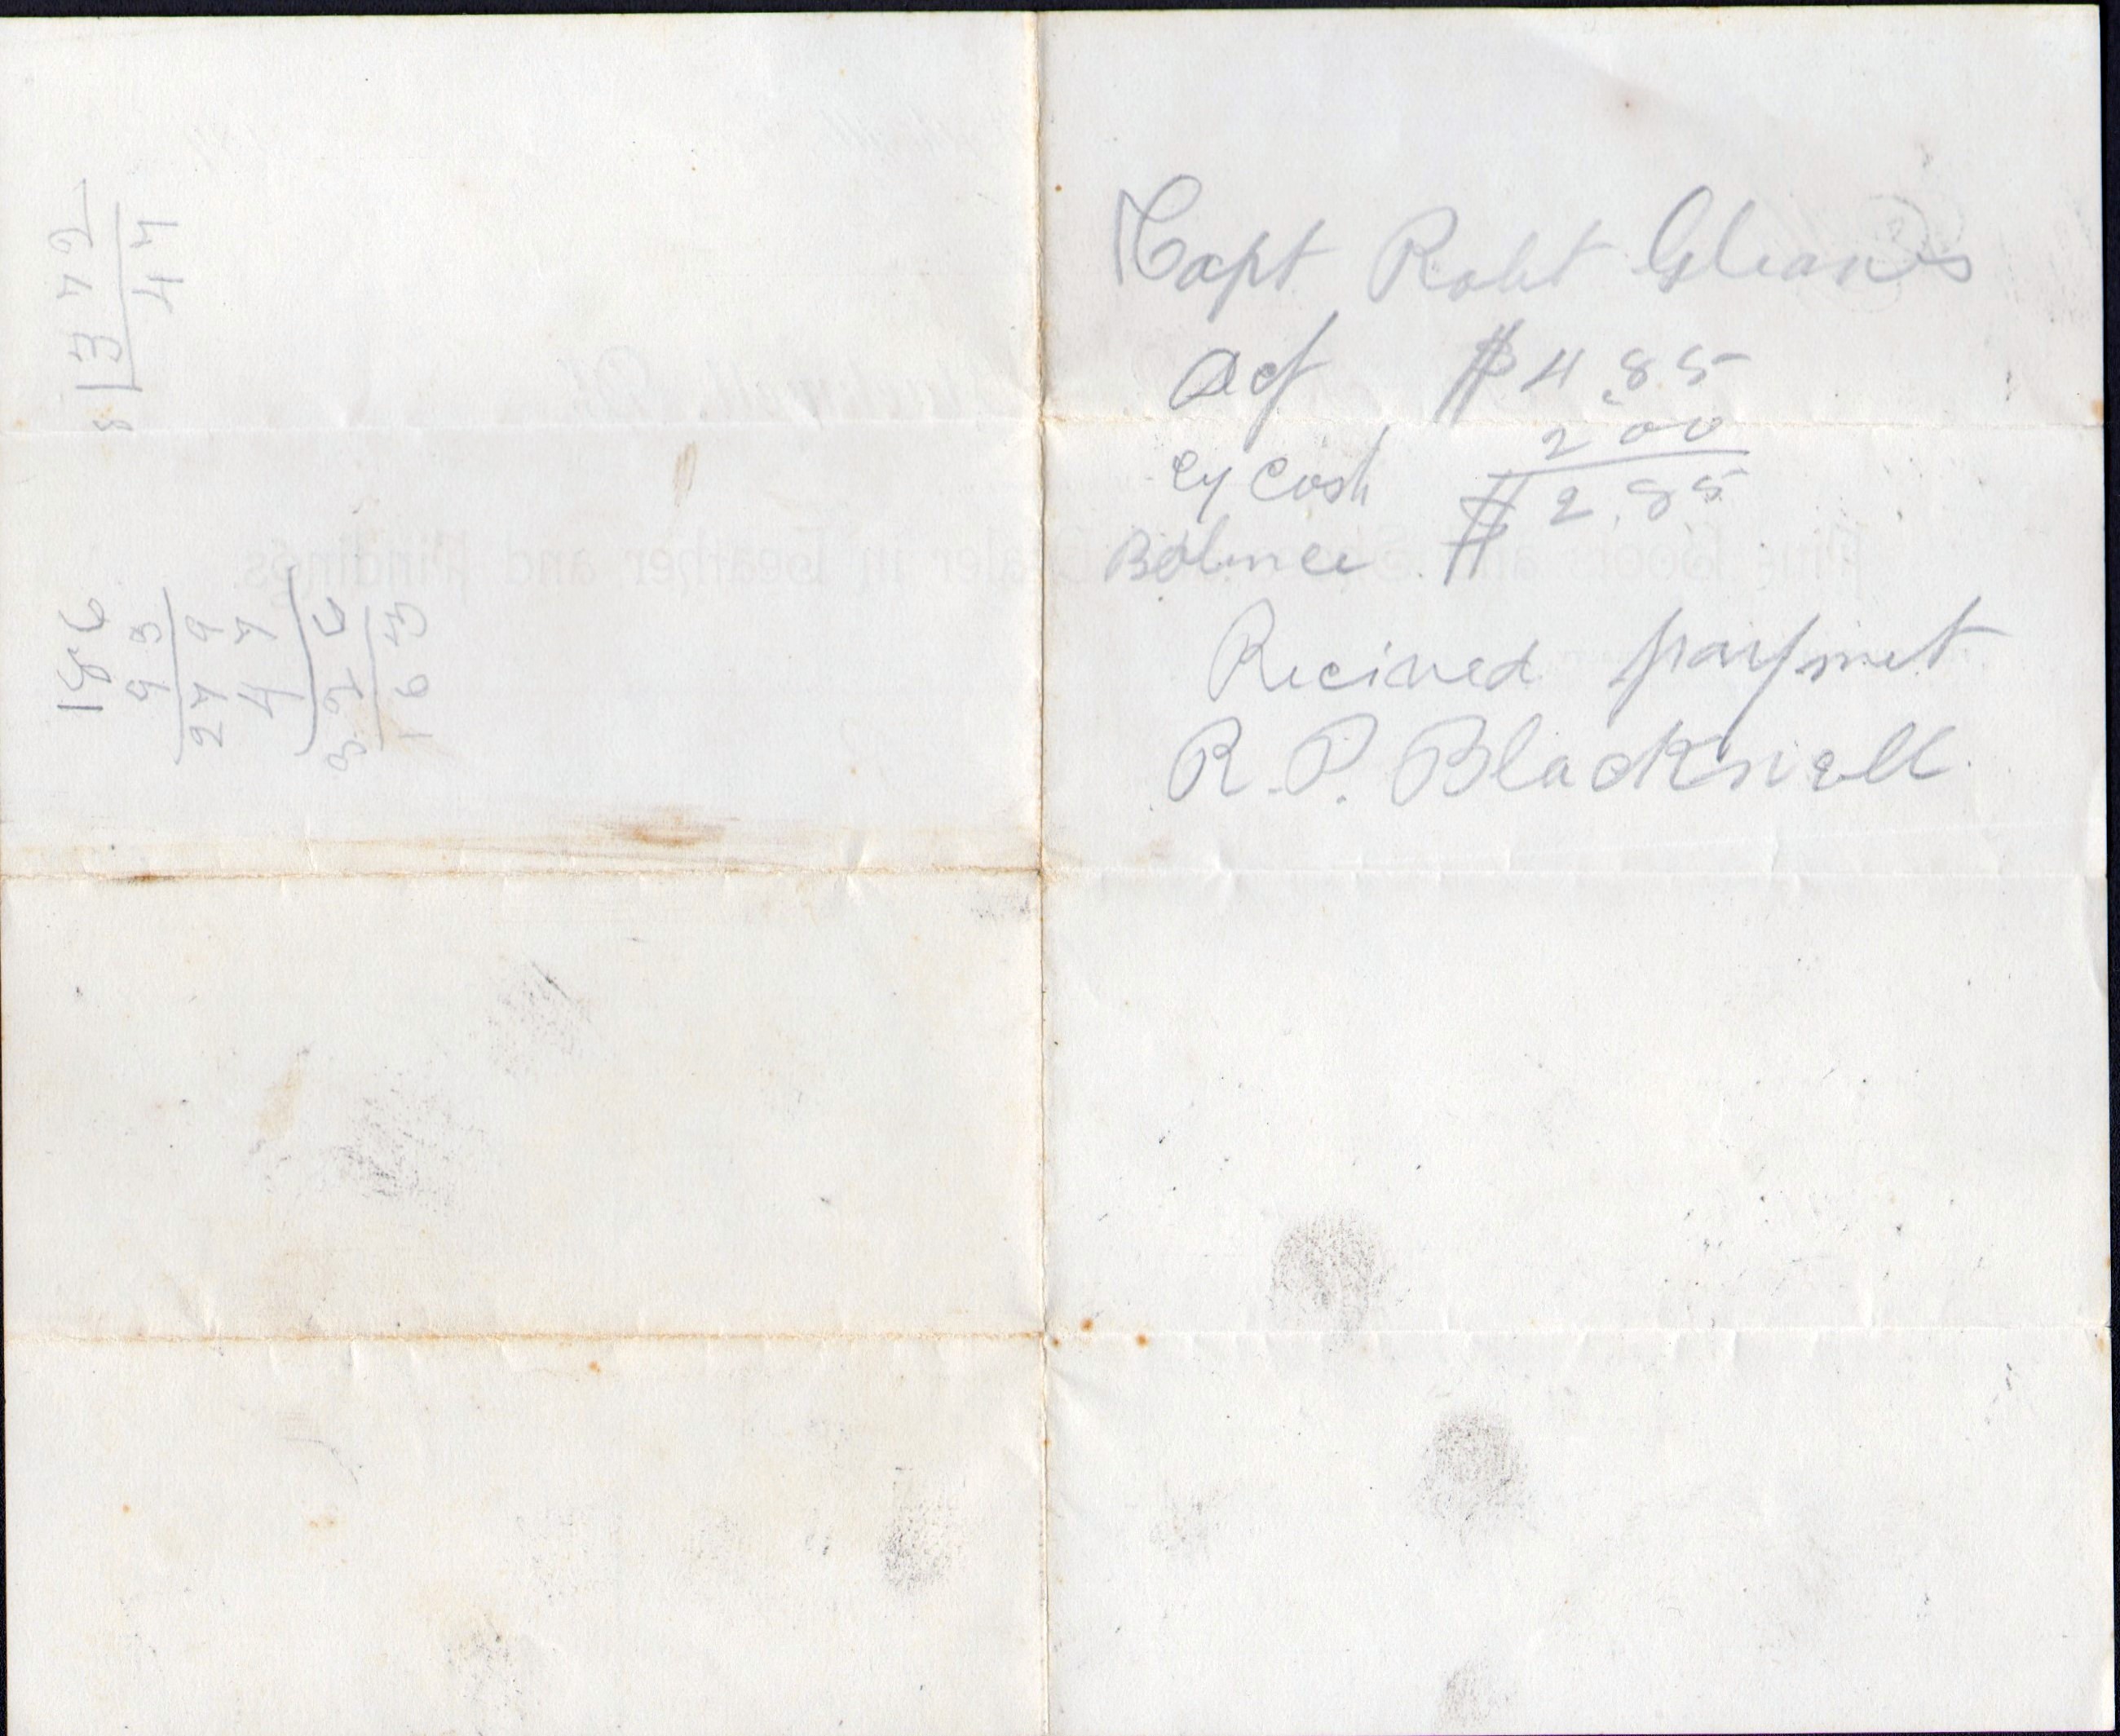 Capt Robt Gleaves
Act $4.85
By Cash 2 00
Balance $2.85
Recived paymet
R. P. Blacknall
8 | 3 7 2
4 7
186
93
279
47
326
163